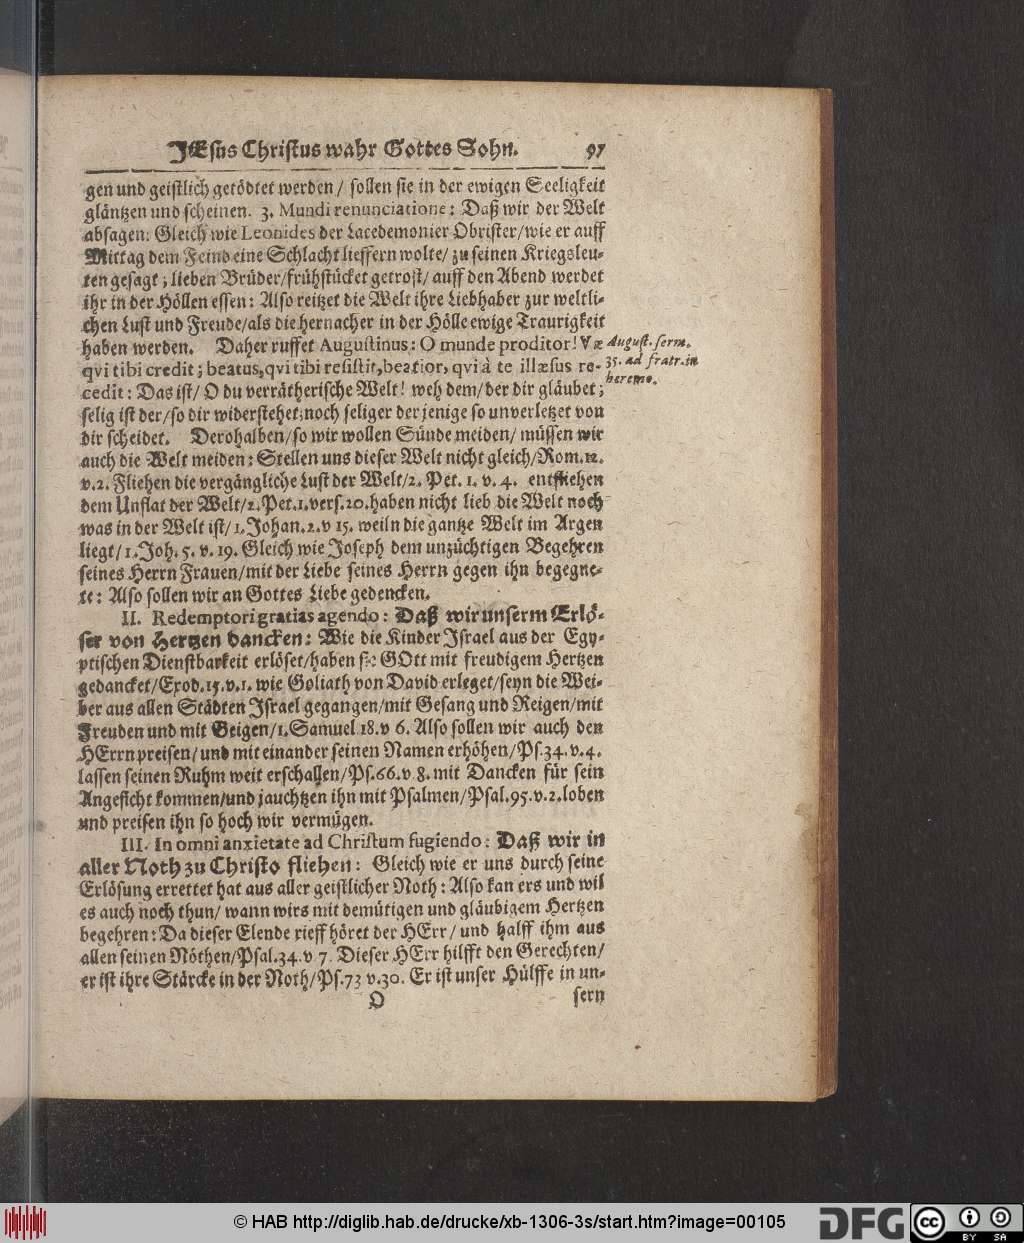 JEsus Christus wahr Gottes Sohn. 97
gen und geistlich getödtet werden / sollen sie in der ewigen Seeligkeit
gläntzen und scheinen. 3. Mundi renunciatione: Daß wir der Welt
absagen: Gleich wie Leonides der Lacedemonier Obrister/wie er auff
Mittag dem Feind eine Schlacht lieffern wolte/ zu seinen Kriegsleu-
ten gesagt; lieben Brüder/frühstücket getrost/ auff den Abend werdet
ihr in der Höllen essen: Also reitzet die Welt ihre Liebhaber zur weltli-
chen Lust und Freude/als die hernacher in der Hölle ewige Traurigkeit
haben werden. Daher ruffet Augustinus: O munde proditor! Væ
qvi tibi credit; beatus, qvi tibi resistit, beatior, qvi à te illæsus re-
cedit: Das ist/ O du verrätherische Welt! weh dem/der dir gläubet;
selig ist der/so dir widerstehet;noch seliger der jenige so unverletzet von
dir scheidet. Derohalben/so wir wollen Sünde meiden/ müssen wir
auch die Welt meiden: Stellen uns dieser Welt nicht gleich/Rom.12.
v.2. Fliehen die vergängliche Lust der Welt/2. Pet. 1. v. 4. entfliehen
dem Unflat der Welt/2. Pet.1.vers.20.haben nicht lieb die Welt noch
was in der Welt ist/ 1. Johan.2.v 15. weiln die gantze Welt im Argen
liegt/1. Joh. 5. v. 19. Gleich wie Joseph dem unzüchtigen Begehren
seines Herrn Frauen/mit der Liebe seines Herrn gegen ihn begegne-
te: Also sollen wir an Gottes Liebe gedencken.
II. Redemptori gratias agendo: Daß wir unserm Erlö-
ser von Hertzen dancken: Wie die Kinder Israel aus der Egy-
ptischen Dienstbarkeit erlöset/haben sie GOtt mit freudigem Hertzen
gedancket/Exod.15.v.1. wie Goliath von David erleget/seyn die Wei-
ber aus allen Städten Israel gegangen/mit Gesang und Reigen/mit
Freuden und mit Geigen/1. Samuel 18. v 6. Also sollen wir auch den
HErrn preisen/ und mit einander seinen Namen erhöhen/Ps.34.v.4.
lassen seinen Ruhm weit erschallen/Ps.66.v 8. mit Dancken für sein
Angesicht kommen/und jauchtzen ihn mit Psalmen/Psal.95.v.2.loben
und preisen ihn so hoch wir vermügen.
III. In omni anxietate ad Christum fugiendo: Daß wir in
aller Noth zu Christo fliehen: Gleich wie er uns durch seine
Erlösung errettet hat aus aller geistlicher Noth: Also kan ers und wil
es auch noch thun/ wann wirs mit demütigen und gläubigem Hertzen
begehren: Da dieser Elende rieff höret der HErr/ und halff ihm aus
allen seinen Nöthen/Psal.34.v 7. Dieser HErr hilfft den Gerechten/
er ist ihre Stärcke in der Noth/Ps.73 v.30. Er ist unser Hülffe in un-
O sern
August. serm.
35. ad fratr. in
heremo.
© HAB http://diglib.hab.de/drucke/xb-1306-3s/start.htm?image=00105
DFG
cc BY SA